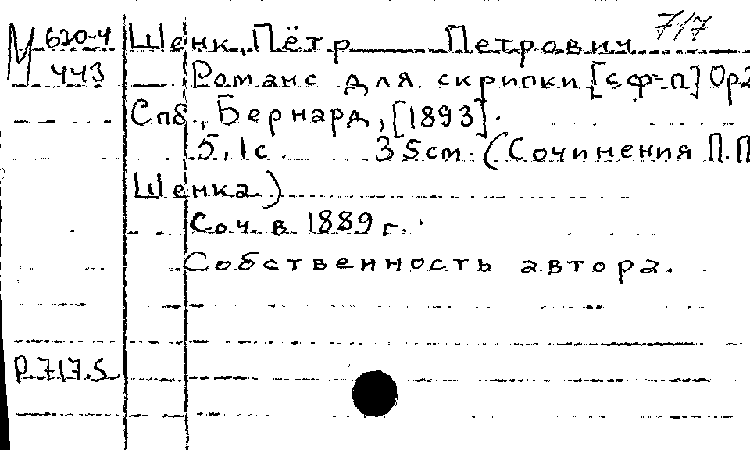 М 620-4 Шенк, Пётр Петрович 7/7
443 Романс для скрипки [с ф-п] Ор2
Спб., Бернард, [1893].
5, 1с 35см. (Сочинения П.П
Шенка)
Соч. в 1889 г.
Собственность автора.
Р.717.5